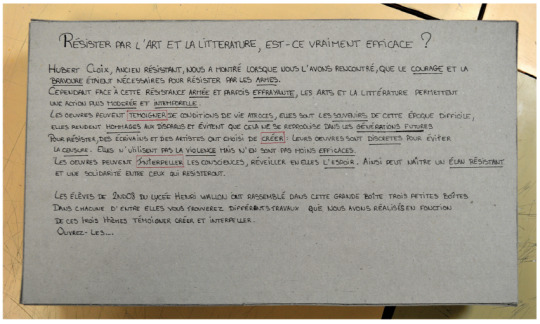 RÉSISTER PAR L'ART ET LA LITTERATURE, EST-CE VRAIMENT EFFICACE ?
HUBERT CLOIX, ANCIEN RÉSISTANT, NOUS A MONTRÉ LORSQUE NOUS L'AVONS RENCONTRÉ, QUE LE COURAGE ET LA
BRAVOURE ÉTAIENT NÉCESSAIRES POUR RÉSISTER PAR LES ARMES.
CEPENDANT FACE À CETTE RÉSISTANCE ARMÉE ET PARFOIS EFFRAYANTE, LES ARTS ET LA LITTÉRATURE PERMETTENT
UNE ACTION PLUS MODÉRÉE ET INTEMPORELLE.
LES OEUVRES PEUVENT TEMOIGNER DE CONDITIONS DE VIE ATROCES, ELLES SONT LES SOUVENIRS DE CETTE ÉPOQUE DIFFICILE,
ELLES RENDENT HOMMAGES AUX DISPARUS ET ÉVITENT QUE CELA NE SE REPRODUISE DANS LES GÉNÉRATIONS FUTURES
POUR RÉSISTER, DES ÉCRIVAINS ET DES ARTISTES ONT CHOISI DE CRÉER : LEURS OEUVRES SONT DISCRETES POUR ÉVITER
LA CENSURE. ELLES N'UTILISENT PAS LA VIOLENCE MAIS N'EN SONT PAS MOINS EFFICACES.
LES OEUVRES PEUVENT INTERPELLER LES CONSCIENCES, RÉVEILLER EN ELLES L'ESPOIR. AINSI PEUT NAÎTRE UN ÉLAN RÉSISTANT
ET UNE SOLIDARITÉ ENTRE CEUX QUI RESISTERONT.
LES ÉLÈVES DE 2ND08 DU LYCÉE HENRI WALLON ONT RASSEMBLÉ DANS CETTE GRANDE BOÎTE TROIS PETITES BOÎTES
DANS CHACUNE D'ENTRE ELLES VOUS TROUVEREZ DIFFÉRENTS TRAVAUX QUE NOUS AVONS RÉALISÉS EN FONCTION
DE CES TROIS THÈMES TÉMOIGNER CRÉER ET INTERPELLER.
OUVREZ-LES...